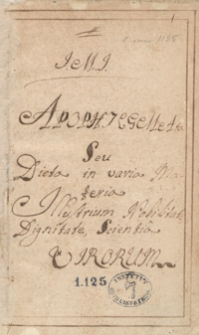 I.M.I.
APOPHTEGMEta
Seu
Dicta in varia Ma
teria
Illustrium Nobilitat
Dignitate, Scientia
VIRORUM
1.125